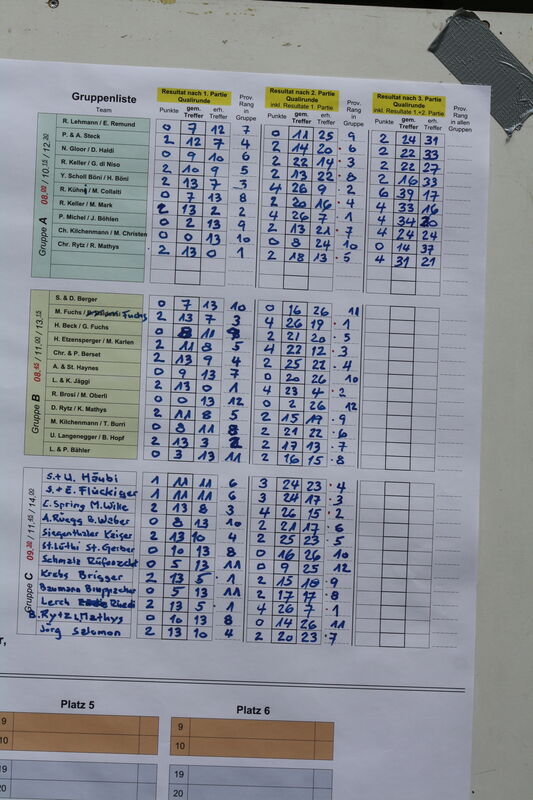 Gruppenliste
Resultat nach 1. Partie Qualirunde
Resultat nach 2. Partie Qualirunde inkl. Resultate 1. Partie
Resultat nach 3. Partie Qualirunde inkl. Resultate 1.+2. Partie
Team Punkte gem. Treffer erh. Treffer Prov. Rang in Gruppe Punkte gem. Treffer erh. Treffer Prov. Rang in Gruppe Punkte gem. Treffer erh. Treffer Prov. Rang in allen Gruppen
Gruppe A 08.00 / 10.15 / 12.30
R. Lehmann / E. Remund 0 7 12 7 0 11 25 9 2 24 31
P. & A. Steck 2 12 7 4 2 14 20 6 2 22 33
N. Gloor / D. Haldi 0 9 10 6 2 22 14 3 2 22 27
R. Keller / G. di Niso 2 10 9 5 2 13 22 8 2 16 33
Y. Scholl Böni / H. Böni 2 13 7 3 4 26 9 2 6 39 17
R. Kühni / M. Collalti 0 7 13 8 2 20 16 4 4 33 16
R. Keller / M. Mark 2 13 2 2 4 26 7 1 4 34 20
P. Michel / J. Böhlen 0 2 13 9 2 13 21 7 4 24 24
Ch. Kilchenmann / M. Christen 0 0 13 10 0 8 24 10 0 14 37
Chr. Rytz / R. Mathys 2 13 0 1 2 18 13 5 4 31 21
Gruppe B 08.45 / 11.00 / 13.15
S. & D. Berger 0 7 13 10 0 16 26 11
M. Fuchs / Fuchs 2 13 7 3 4 26 19 1
H. Beck / G. Fuchs 0 8 11 2 21 20 5
H. Etzensperger / M. Karlen 2 11 8 5 4 22 12 3
Chr. & P. Berset 2 13 9 4 2 25 22 4
A. & St. Haynes 0 9 13 7 0 20 26 10
L. & K. Jäggi 2 13 0 1 4 23 4 2
R. Brosi / M. Oberli 0 0 13 12 0 2 26 12
D. Rytz / K. Mathys 2 11 8 5 2 15 17 9
M. Kilchenmann / T. Burri 0 8 11 8 2 21 22 6
U. Langenegger / B. Hopf 2 13 3 2 2 17 13 7
L. & P. Bähler 0 3 13 11 2 16 15 8
Gruppe C 09.30 / 11.45 / 14.00
S.+U. Häubi 1 11 11 6 3 24 23 4
S.+E. Flückiger 1 11 11 6 3 24 17 3
C. Spring M. Wilke 2 13 8 3 4 26 15 2
A. Rüegg B. Weber 0 8 13 10 2 21 17 6
Siegenthaler Keiser 2 13 10 4 2 25 23 5
St. Lüthi St. Gerber 0 10 13 8 0 16 26 10
Schmalz 0 5 13 11 0 9 25 12
Krebs Brigger 2 13 5 1 2 15 18 9
Baumann 0 5 13 11 2 17 17 8
Lerch 2 13 5 1 4 26 7 1
B. Rytz L. Mathys 0 10 13 8 0 14 26 11
Jörg Salomon 2 13 10 4 2 20 23 7
Platz 5 Platz 6
9 9
10 10
19 19
20 20